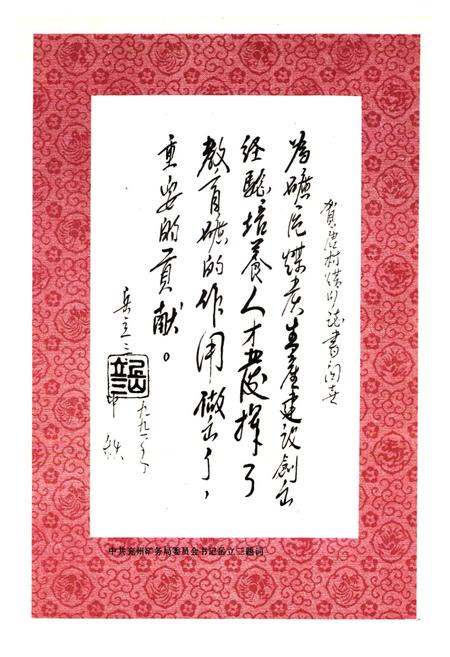 賀唐村煤矿志書问世
為礦区煤炭生產建设创出
经驗培養人才发挥了
教育礦的作用做出了，
重要的贡献。
岳立三
一九九一年
中秋
中共兖州矿务局委员会书记岳立三题词